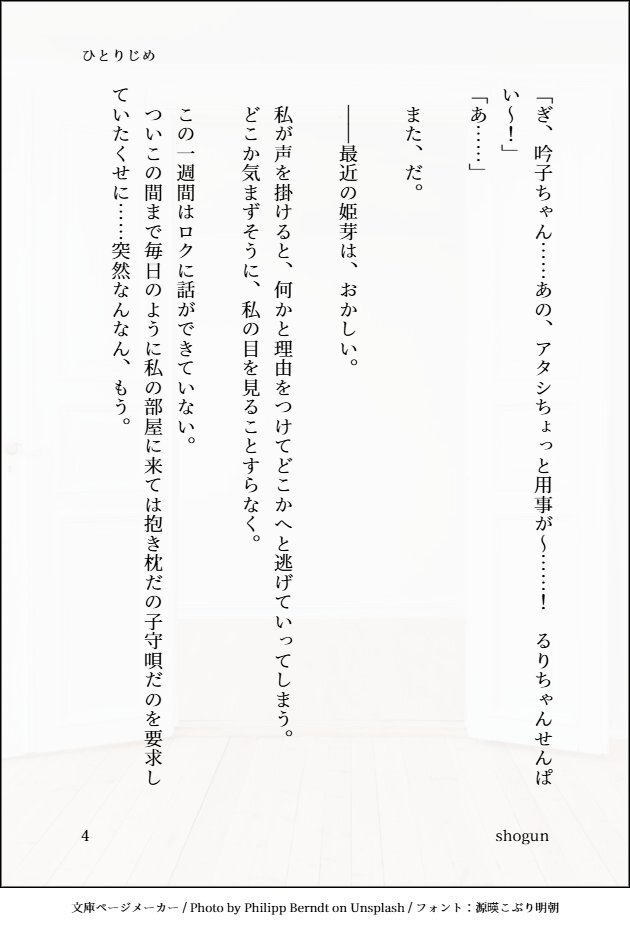 ひとりじめ
「ぎ、吟子ちゃん……あの、アタシちょっと用事が～……！　るりちゃんせんぱ
い～！」
「あ……」
また、だ。
――最近の姫芽は、おかしい。
私が声を掛けると、何かと理由をつけてどこかへと逃げていってしまう。
どこか気まずそうに、私の目を見ることすらなく。
この一週間はロクに話ができていない。
ついこの間まで毎日のように私の部屋に来ては抱き枕だの子守唄だのを要求し
ていたくせに……突然なんなん、もう。
4
shogun
文庫ページメーカー / Photo by Philipp Berndt on Unsplash / フォント：源暎こぶり明朝